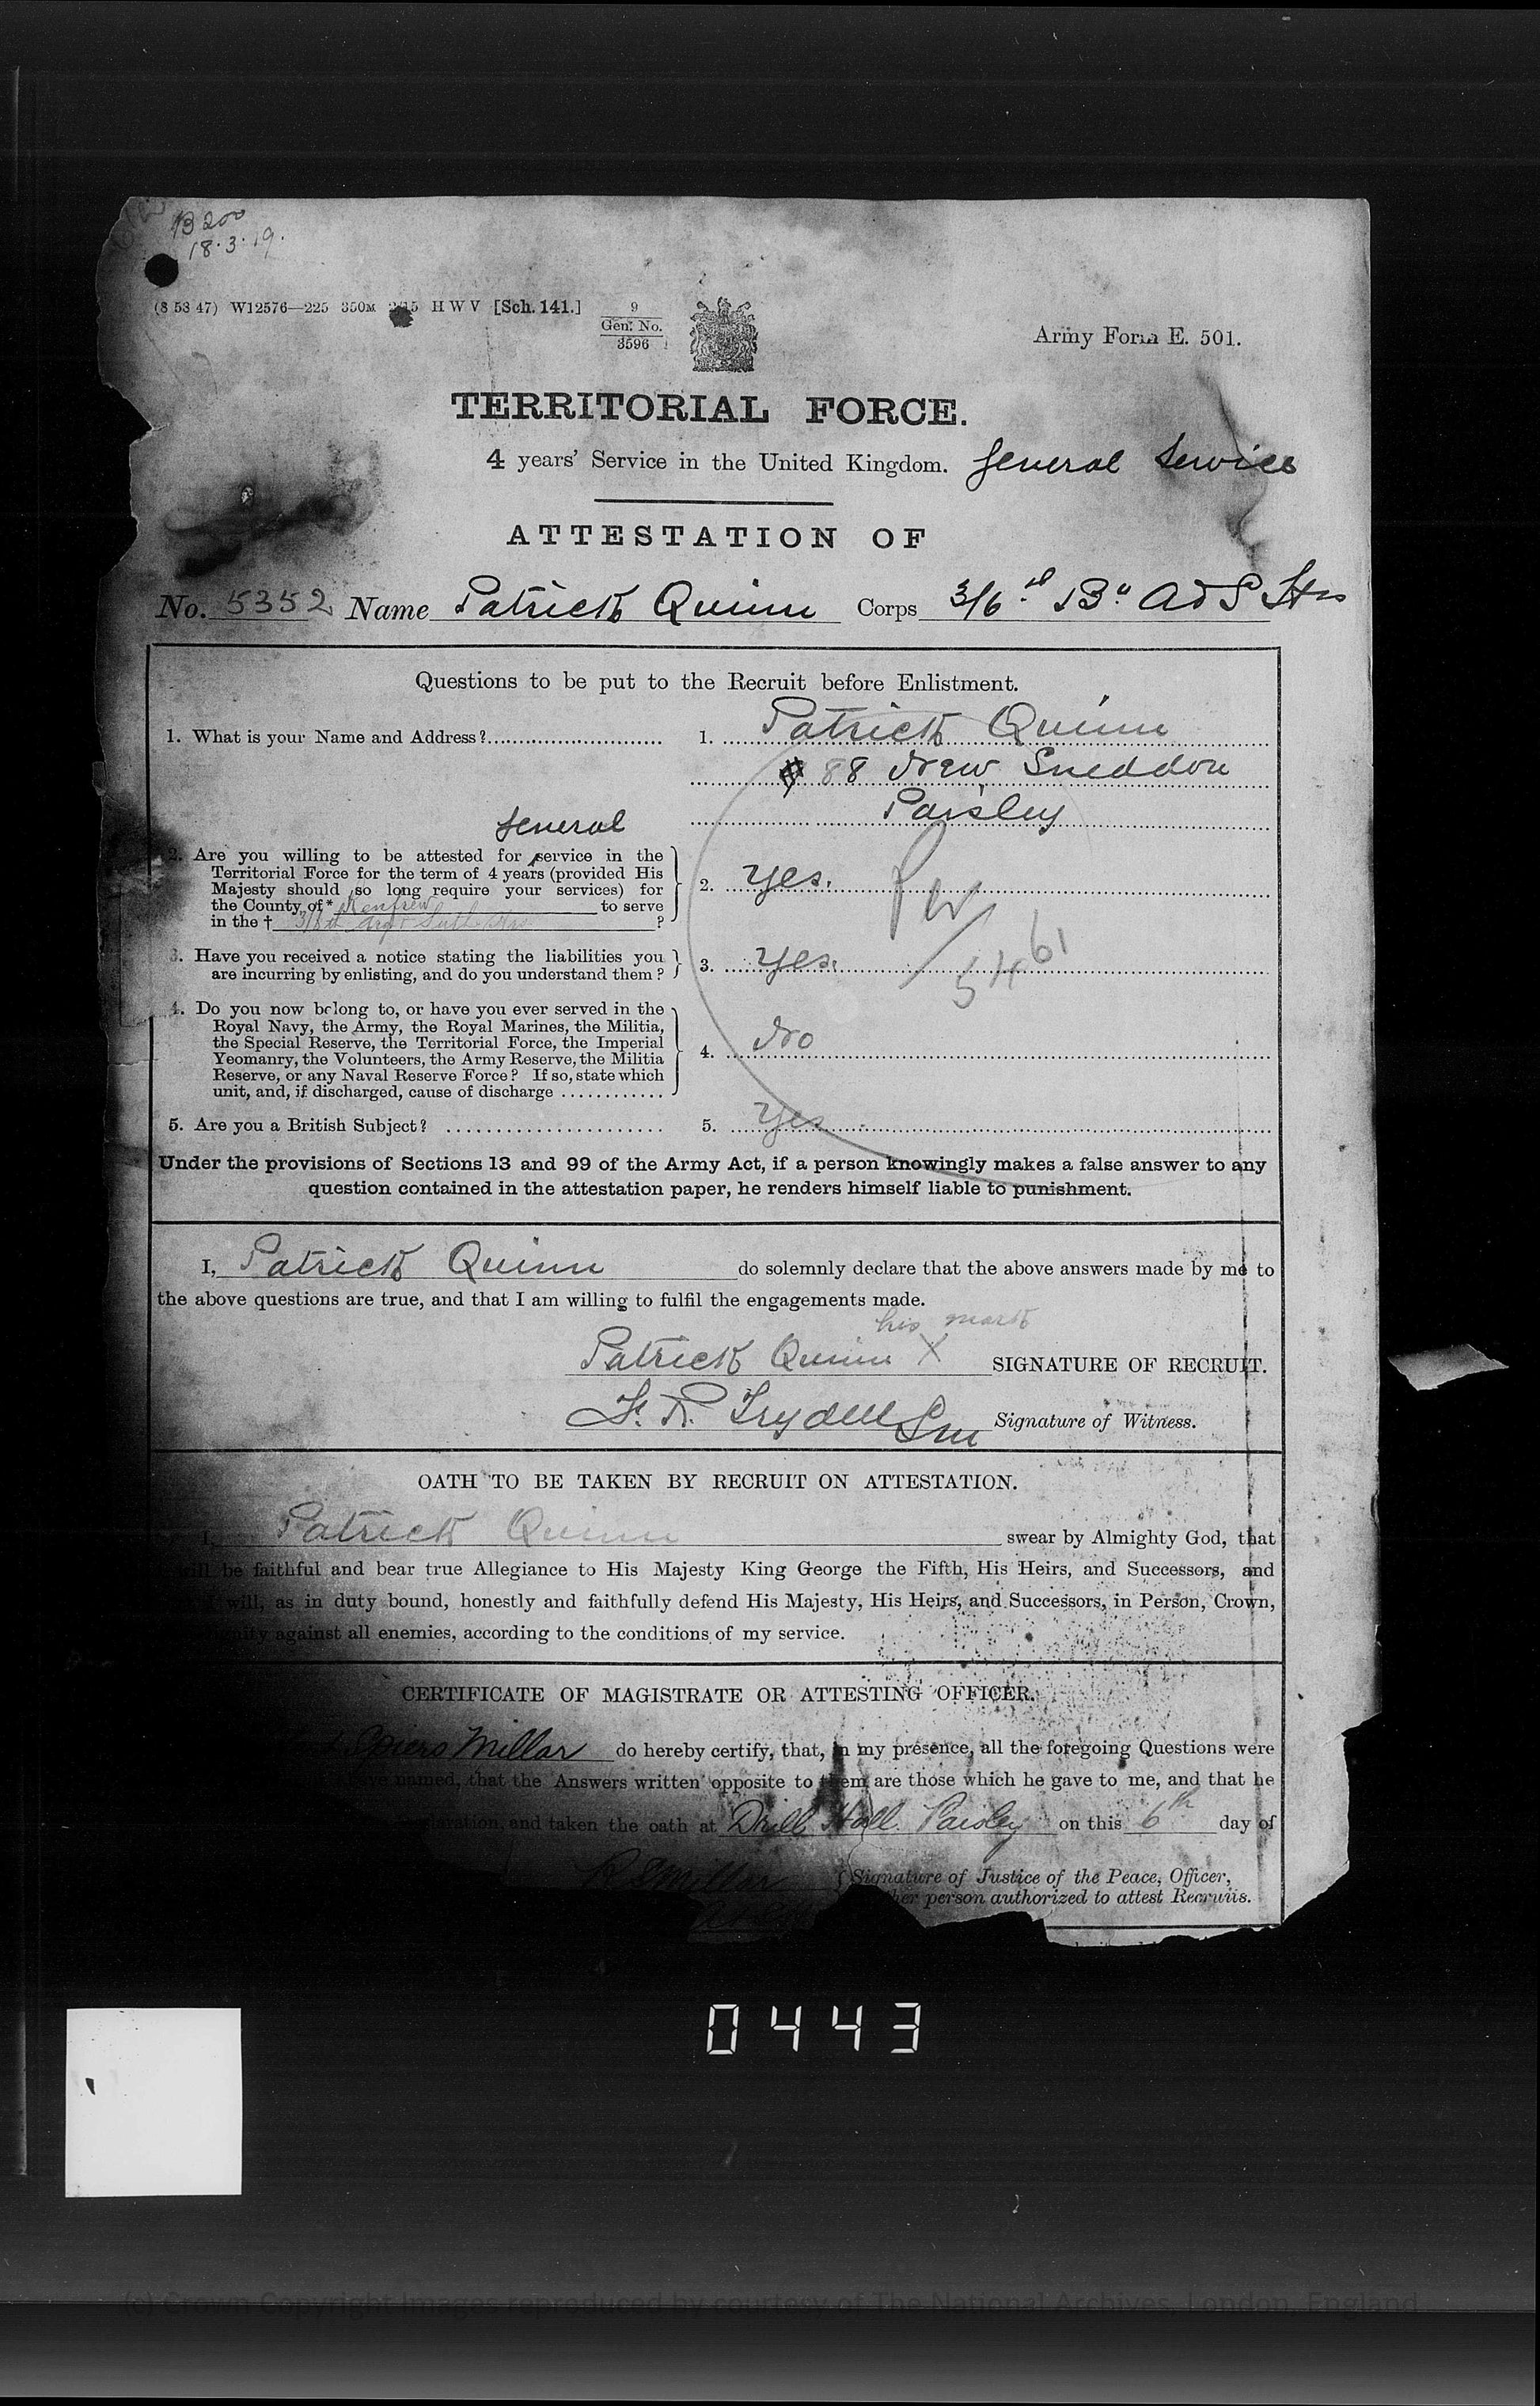 B 200
18.3.19.
(8 53 47) W12576—225 350M 2/15 H W V [Sch. 141.] 9
Gen. No.
3596
Army Form E. 501.
TERRITORIAL FORCE.
4 years' Service in the United Kingdom. General Service
ATTESTATION OF
No. 5352 Name Patrick Quinn Corps 3/6th Bn A & S Hrs
Questions to be put to the Recruit before Enlistment.
1. What is your Name and Address? 1. Patrick Quinn
88 New Sneddon
Paisley
General
2. Are you willing to be attested for service in the
Territorial Force for the term of 4 years (provided His
Majesty should so long require your services) for
the County of* Renfrew to serve
in the † 3/6th Arg & Suth. Hrs ?
2. Yes.
3. Have you received a notice stating the liabilities you
are incurring by enlisting, and do you understand them?
3. Yes.
5461
4. Do you now belong to, or have you ever served in the
Royal Navy, the Army, the Royal Marines, the Militia,
the Special Reserve, the Territorial Force, the Imperial
Yeomanry, the Volunteers, the Army Reserve, the Militia
Reserve, or any Naval Reserve Force? If so, state which
unit, and, if discharged, cause of discharge ............
4. No
5. Are you a British Subject? 5. Yes
Under the provisions of Sections 13 and 99 of the Army Act, if a person knowingly makes a false answer to any
question contained in the attestation paper, he renders himself liable to punishment.
I, Patrick Quinn do solemnly declare that the above answers made by me to
the above questions are true, and that I am willing to fulfil the engagements made.
his mark
Patrick Quinn X SIGNATURE OF RECRUIT.
Signature of Witness.
OATH TO BE TAKEN BY RECRUIT ON ATTESTATION.
I, Patrick Quinn swear by Almighty God, that
will be faithful and bear true Allegiance to His Majesty King George the Fifth, His Heirs, and Successors, and
I will, as in duty bound, honestly and faithfully defend His Majesty, His Heirs, and Successors, in Person, Crown,
against all enemies, according to the conditions of my service.
CERTIFICATE OF MAGISTRATE OR ATTESTING OFFICER.
Spiers Millar do hereby certify, that, in my presence, all the foregoing Questions were
named, that the Answers written opposite to them are those which he gave to me, and that he
and taken the oath at Drill Hall Paisley on this 6th day of
R S Millar Signature of Justice of the Peace, Officer,
person authorized to attest Recruits.
0443
(c) Crown Copyright Images reproduced by courtesy of The National Archives, London, England.